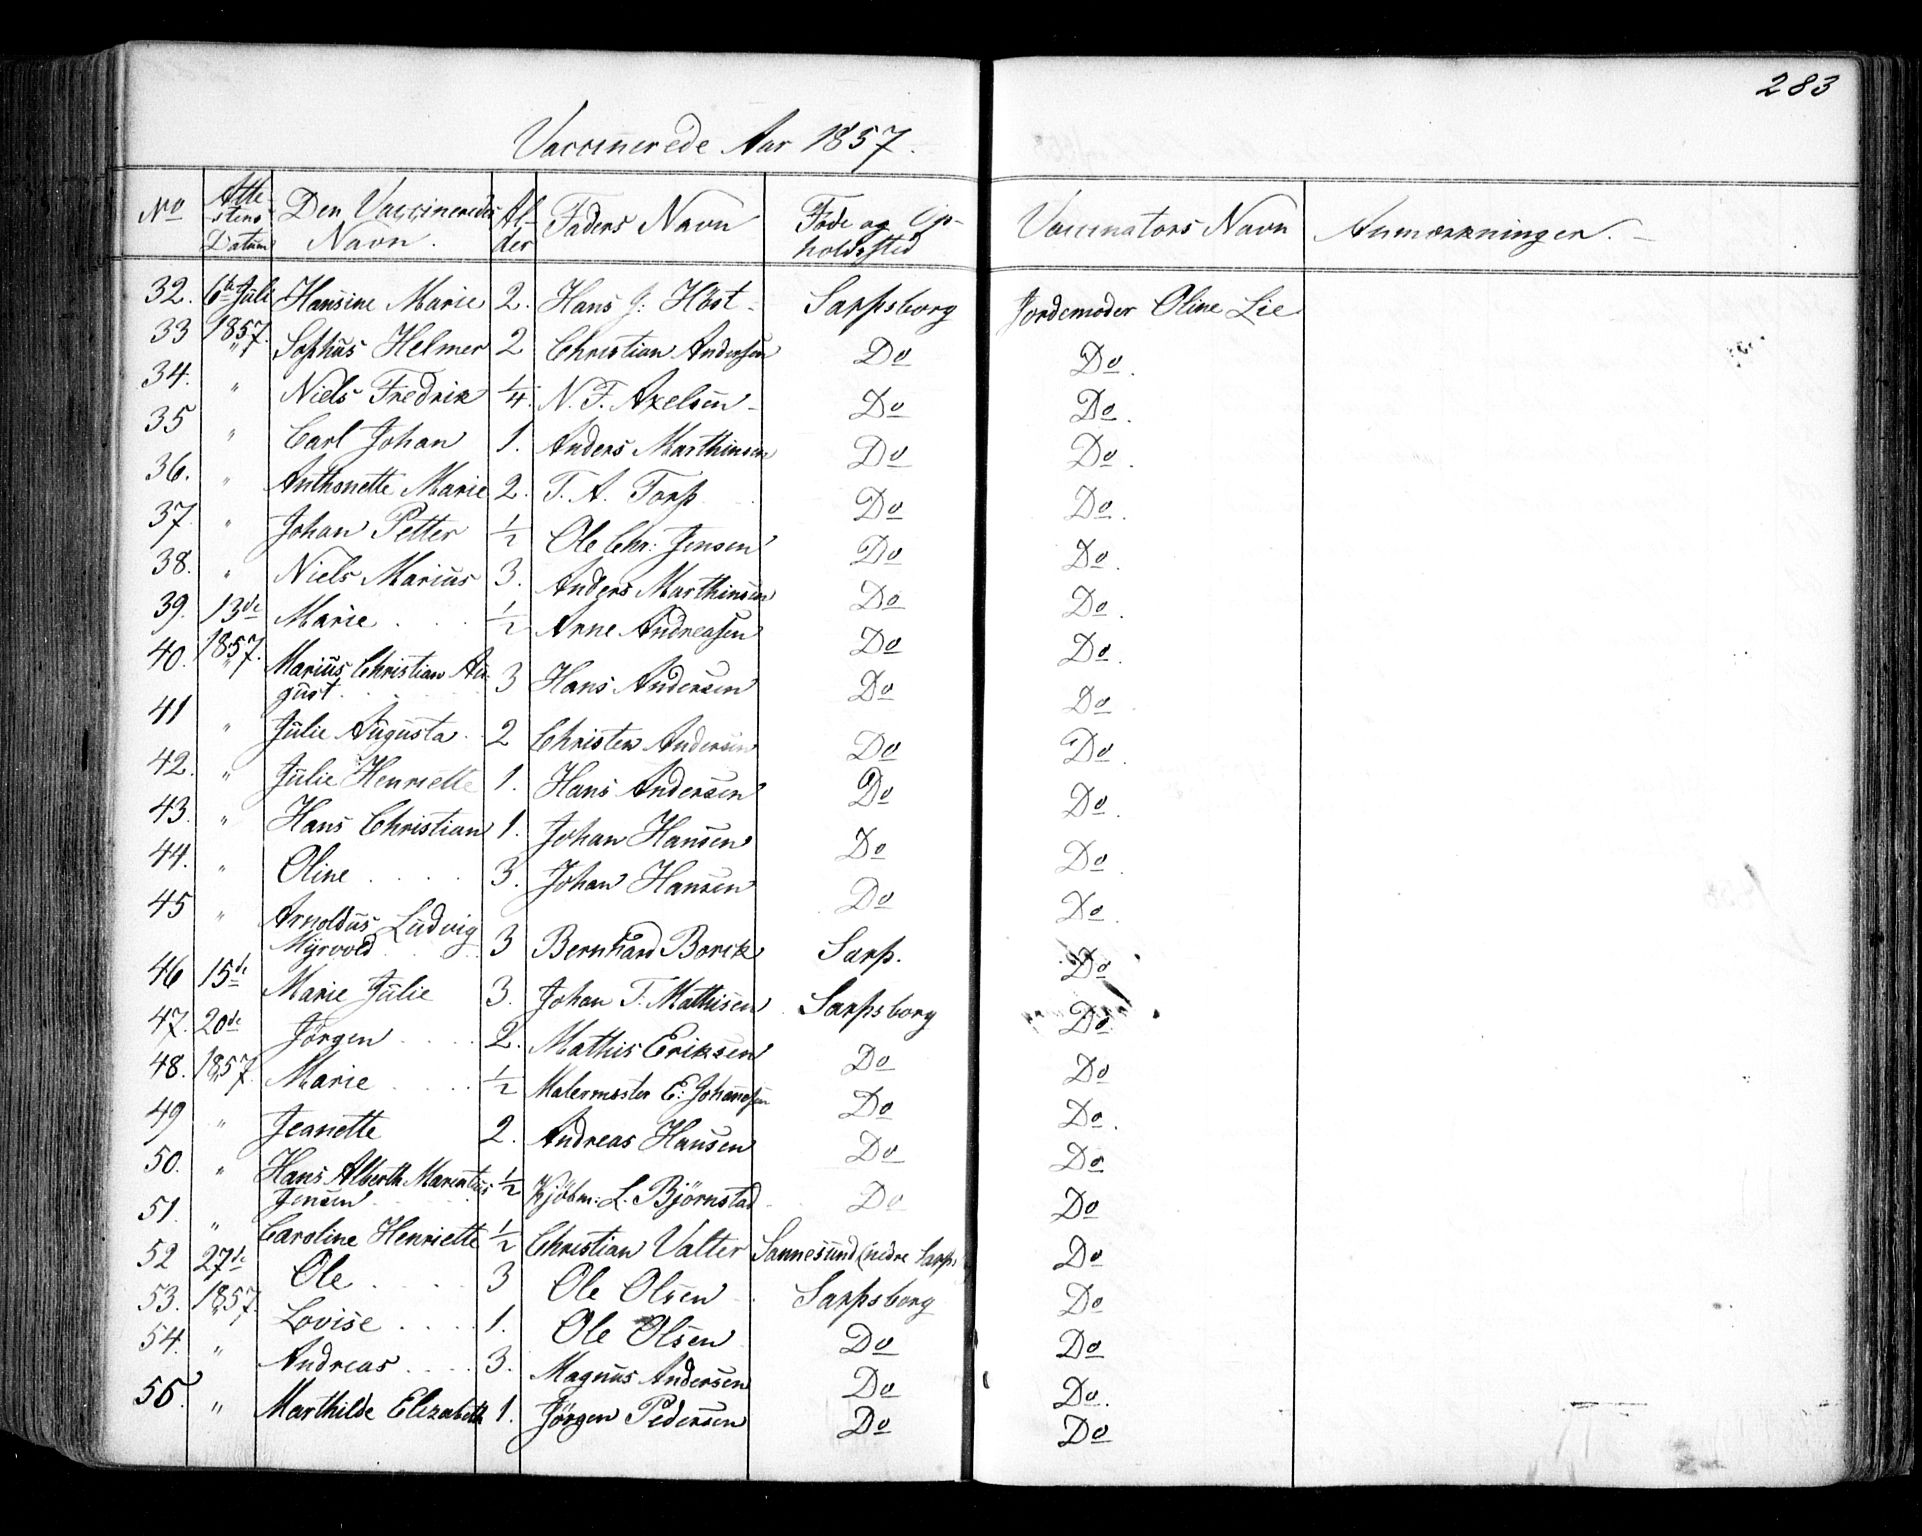 283
Vaccinerede Aar 1857.
No | Atte-stens Datum | Den Vaccineredes Navn. | Al-der | Faders Navn | Føde og Op-holdssted | Vaccinators Navn | Anmærkninger.
32. | 6te Juli | Hansine Marie | 2. | Hans J: Höst | Sarpsborg | Jordemoder Oline Lie
33 | 1857. " | Sophus Helmer | 2 | Christian Andersen | Do | Do.
34. | " | Niels Fredrik | 1/4. | N. F. Axelsen | Do | Do.
35 | " | Carl Johan | 1. | Anders Marthinsen | Do | Do.
36. | " | Anthonette Marie | 2. | T. A. Torp | Do | Do.
37. | " | Johan Petter | 1/2 | Ole Chr: Jensen | Do | Do.
38. | " | Niels Marius | 3. | Anders Marthinsen | Do | Do.
39. | 13de | Marie | 1/2 | Arne Andreasen | Do | Do.
40. | 1857. " | Marius Christian Au-gust. | 3 | Hans Andersen | Do | Do.
41 | " | Julie Augusta | 2 | Christen Andersen | Do | Do.
42. | " | Julie Henriette | 1. | Hans Andersen | Do | Do.
43. | " | Hans Christian | 1. | Johan Hansen | Do | Do.
44. | " | Oline | 3. | Johan Hansen | Do | Do.
45 | " | Arnoldus Ludvig Myrvold | 3 | Bernhard Borck | Sarp. | Do
46 | 15de | Marie Julie | 3. | Johan T. Mathisen | Sarpsborg | Do.
47. | 20de | Jörgen | 2. | Mathis Eriksen | Do | Do
48. | 1857. " | Marie | 1/2 | Malermester E: Johannesen | Do | Do.
49 | " | Jeanette | 2. | Andreas Hansen | Do | Do
50. | " | Hans Alberth Marentius Jensen | 1/2 | Kjöbm: L. Björnstad | Do | Do
51. | " | Caroline Henriette | 1/2 | Christian Valter | Sannesund (nedre Sarps | Do
52 | 27de | Ole | 3 | Ole Olsen | Sarpsborg | Do
53. | 1857. " | Lovise | 1. | Ole Olsen | Do | Do
54. | " | Andreas | 3. | Magnus Andersen | Do | Do.
55. | " | Marthilde Elizabeth | 1. | Jörgen Pedersen | Do | Do